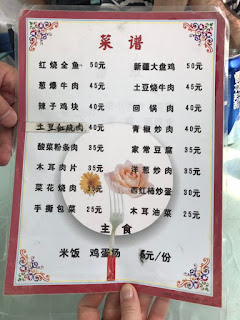 菜谱
红烧全鱼 50元 新疆大盘鸡 50元
葱爆牛肉 45元 土豆烧牛肉 45元
辣子鸡块 40元 回锅肉 40元
土豆红烧肉 40元 青椒炒肉 40元
酸菜粉条肉 35元 家常豆腐 35元
木耳肉片 35元 洋葱炒肉 35元
菜花烧肉 35元 西红柿炒蛋 30元
手撕包菜 25元 木耳油菜 25元
主食
米饭 鸡蛋汤 元/份